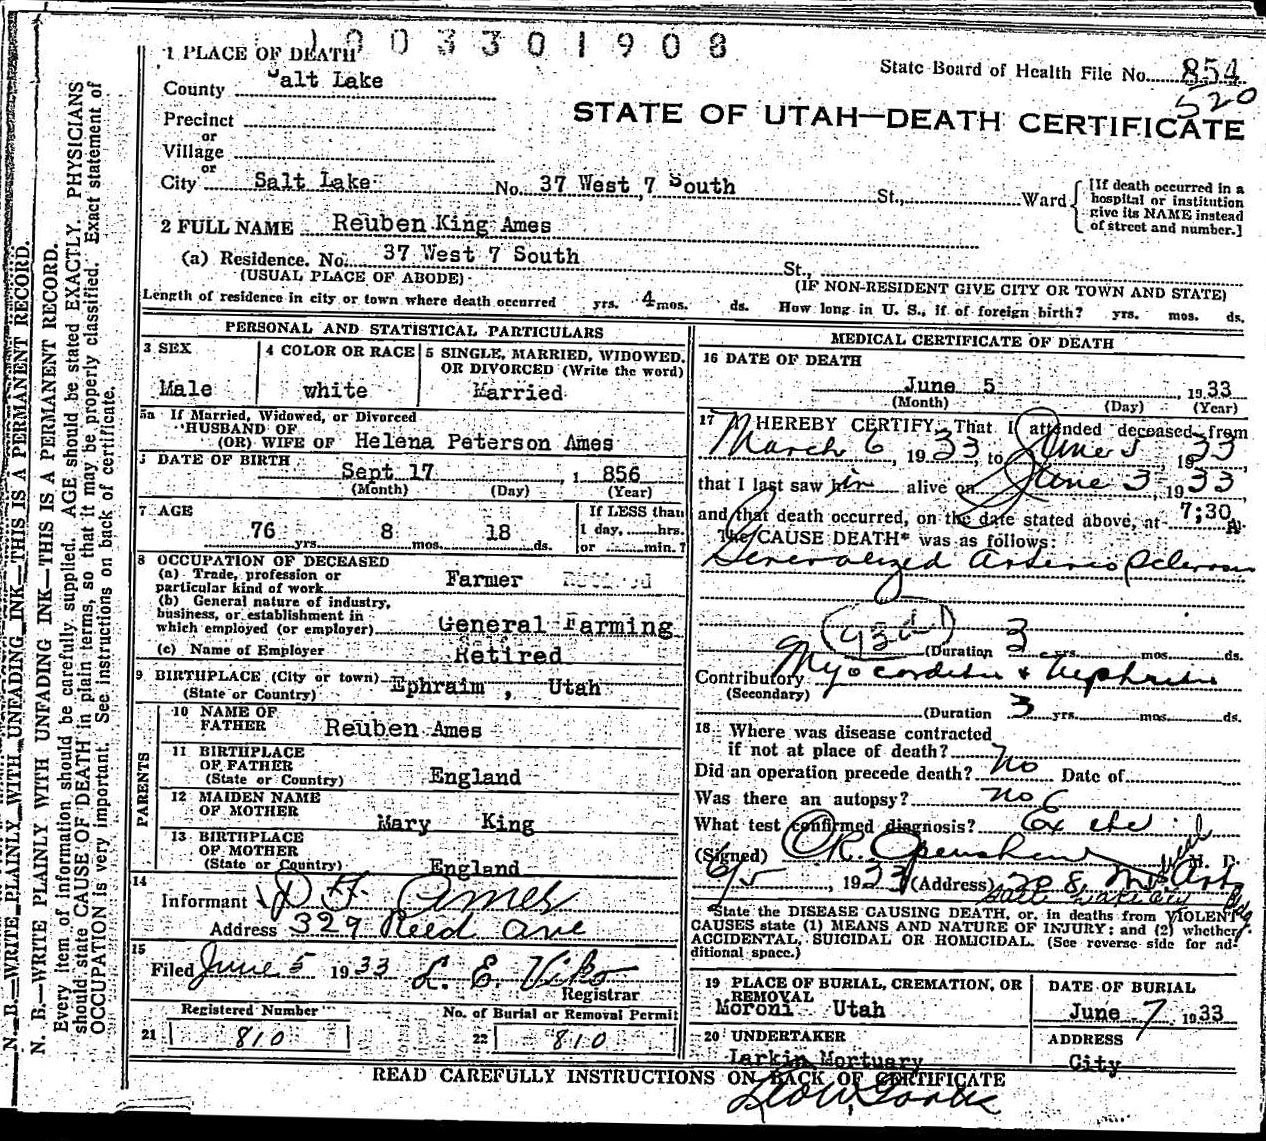 1003301908
1 PLACE OF DEATH
State Board of Health File No. 854
520
County Salt Lake
STATE OF UTAH—DEATH CERTIFICATE
Precinct
or
Village
or
City Salt Lake No. 37 West 7 South St., Ward
[If death occurred in a
hospital or institution
give its NAME instead
of street and number.]
2 FULL NAME Reuben King Ames
(a) Residence. No. 37 West 7 South St.,
(USUAL PLACE OF ABODE) (IF NON-RESIDENT GIVE CITY OR TOWN AND STATE)
Length of residence in city or town where death occurred yrs. 4 mos. ds. How long in U. S., if of foreign birth? yrs. mos. ds.
PERSONAL AND STATISTICAL PARTICULARS
3 SEX
Male
4 COLOR OR RACE
white
5 SINGLE, MARRIED, WIDOWED,
OR DIVORCED (Write the word)
Married
5a If Married, Widowed, or Divorced
HUSBAND OF
(OR) WIFE OF Helena Peterson Ames
DATE OF BIRTH
Sept 17, 1856
(Month) (Day) (Year)
7 AGE
76 yrs. 8 mos. 18 ds.
If LESS than
1 day, hrs.
or min.?
8 OCCUPATION OF DECEASED
(a) Trade, profession or
particular kind of work Farmer Retired
(b) General nature of industry,
business, or establishment in
which employed (or employer) General Farming
(c) Name of Employer Retired
9 BIRTHPLACE (City or town) Ephraim, Utah
(State or Country)
PARENTS
10 NAME OF
FATHER Reuben Ames
11 BIRTHPLACE
OF FATHER
(State or Country) England
12 MAIDEN NAME
OF MOTHER Mary King
13 BIRTHPLACE
OF MOTHER
(State or Country) England
14
Informant Ames
Address 329 Reed Ave
15
Filed June 5 1933 L. E. Viko
Registrar
Registered Number
21 810
No. of Burial or Removal Permit
22 810
MEDICAL CERTIFICATE OF DEATH
16 DATE OF DEATH
June 5, 1933
(Month) (Day) (Year)
17 I HEREBY CERTIFY, That I attended deceased from
March 6, 1933, to June 5, 1933
that I last saw him alive on June 3, 1933
and that death occurred, on the date stated above, at 7;30 A.
The CAUSE DEATH* was as follows:
Generalized Arterio Sclerosis
(Duration 3 yrs. mos. ds.
Contributory Myocarditis + Nephritis
(Secondary)
(Duration 3 yrs. mos. ds.
18 Where was disease contracted
if not at place of death? No
Did an operation precede death? Date of
Was there an autopsy? no
What test confirmed diagnosis?
(Signed) Openshaw M. D.
6/5, 1933 (Address)
*State the DISEASE CAUSING DEATH, or, in deaths from VIOLENT
CAUSES state (1) MEANS AND NATURE OF INJURY: and (2) whether
ACCIDENTAL, SUICIDAL OR HOMICIDAL. (See reverse side for ad-
ditional space.)
19 PLACE OF BURIAL, CREMATION, OR
REMOVAL
Moroni Utah
DATE OF BURIAL
June 7 1933
20 UNDERTAKER
Larkin Mortuary
ADDRESS
City
READ CAREFULLY INSTRUCTIONS ON BACK OF CERTIFICATE
N. B.—WRITE PLAINLY WITH UNFADING INK—THIS IS A PERMANENT RECORD.
N. B.—WRITE PLAINLY WITH UNFADING INK—THIS IS A PERMANENT RECORD.
Every item of information should be carefully supplied. AGE should be stated EXACTLY. PHYSICIANS
should state CAUSE OF DEATH in plain terms, so that it may be properly classified. Exact statement of
OCCUPATION is very important. See instructions on back of certificate.